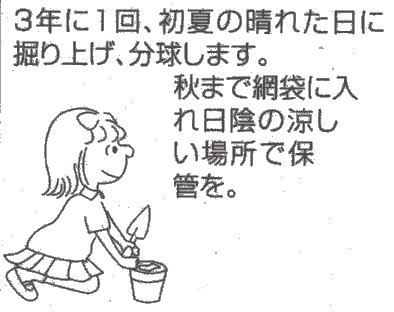 3年に1回、初夏の晴れた日に
掘り上げ、分球します。
秋まで網袋に入
れ日陰の涼し
い場所で保
管を。